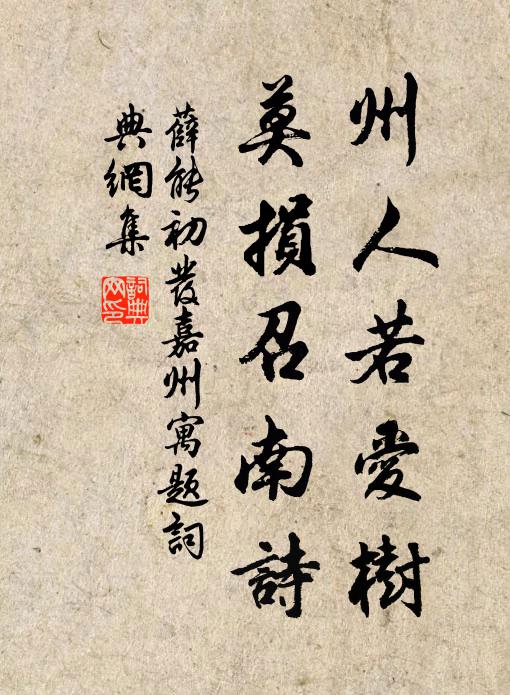 州人若愛樹
莫損召南詩
薛能初發嘉州寓題詞
典網集
詞典
网印